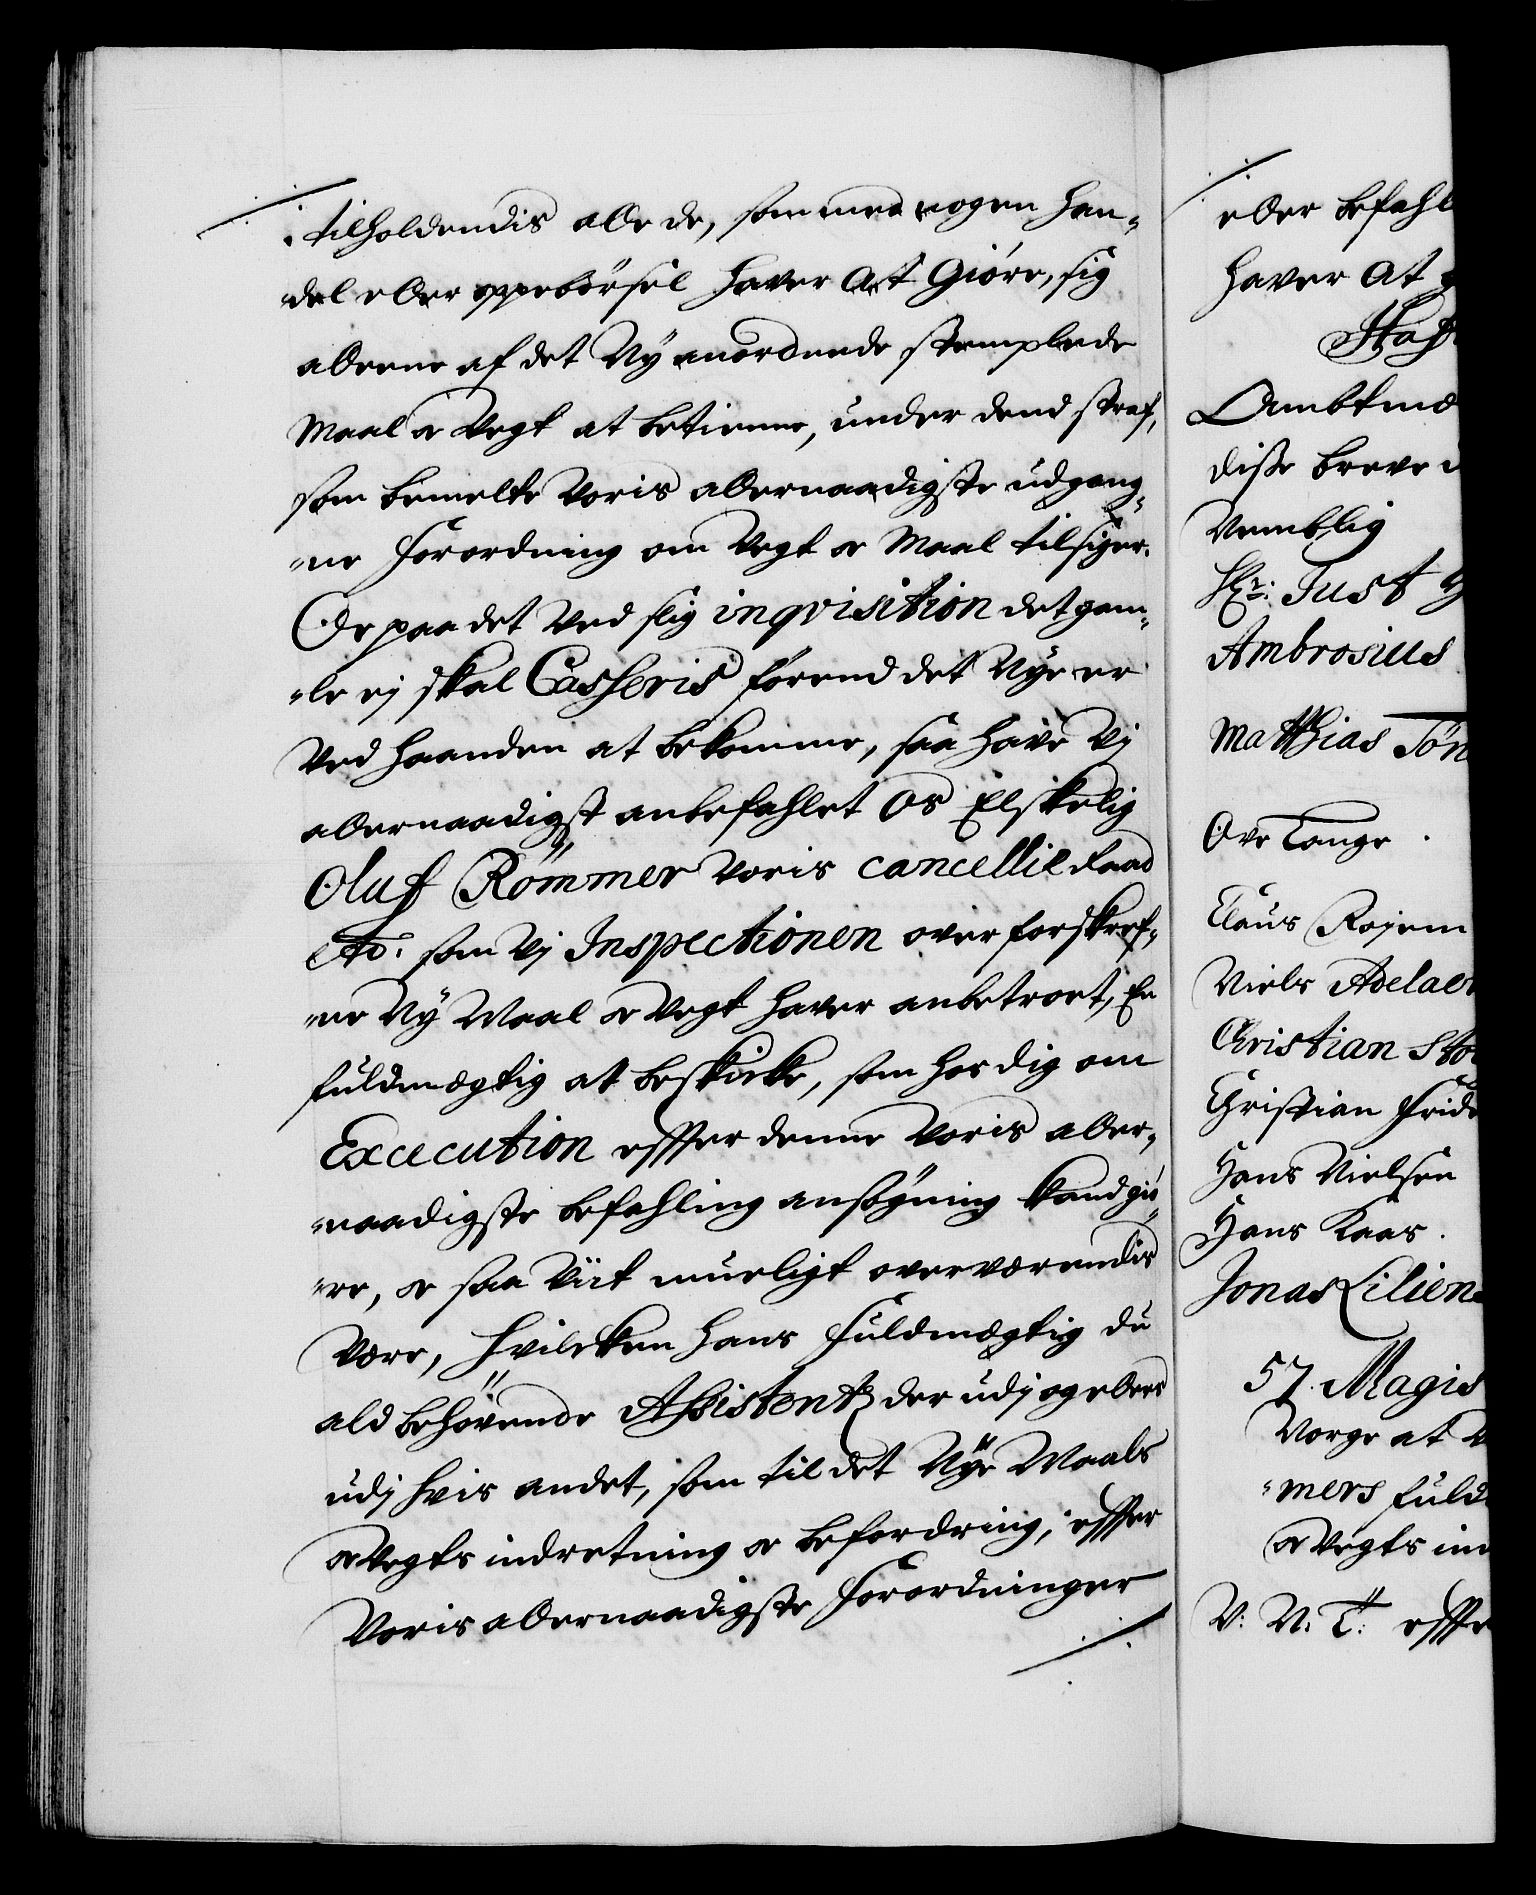 tilholdendis alle de, som med nogen han-
del eller oppebörsel haver at Giöre, sig
alleene af det Ny anordnede stemplede
Maal oc Vegt at betienne, under dend straf,
som bemelte Voris allernaadigste udgang-
ne Forordning om Vegt oc Maal tilsiger.
Oc paa det Ved slig inqvisition det gam-
le ej skal Casseris förend det Nye er
Ved haanden at bekomme, saa have Vj
allernaadigst anbefahlet Os Elskelig
Oluf Römmer Voris Cancellie Raad
etc: som Vj Inspectionen over forskref-
ne Ny Maal oc Vegt haver anbetroet, En
fuldmegtig at beskicke, som hos dig om
Execution effter denne Voris aller-
naadigste befahling ansögning kand giö-
re, oc saa Vit mueligt overværendis
Være, hvilcken hans Fuldmegtig du
ald behövende Assistentz der udj og ellers
udj hvis andet, som til det Nye Maals
oc Vegts indretning oc befordring, effter
Voris allernaadigste Forordninger
eller befahl
haver at
Haf
Ambtmæ
disse breve
Nemblig
Hr: Just
Ambrosius
Matthias Tön
Ove Lange.
Claus Rojem
Niels Adelaer
Christian Sto
Christian Frid
Hans Nielsen
Hans Kaas.
Jonas Lilien
57. Magis
Norge at
mers fuld
oc Vegts in
V: N: T: effte